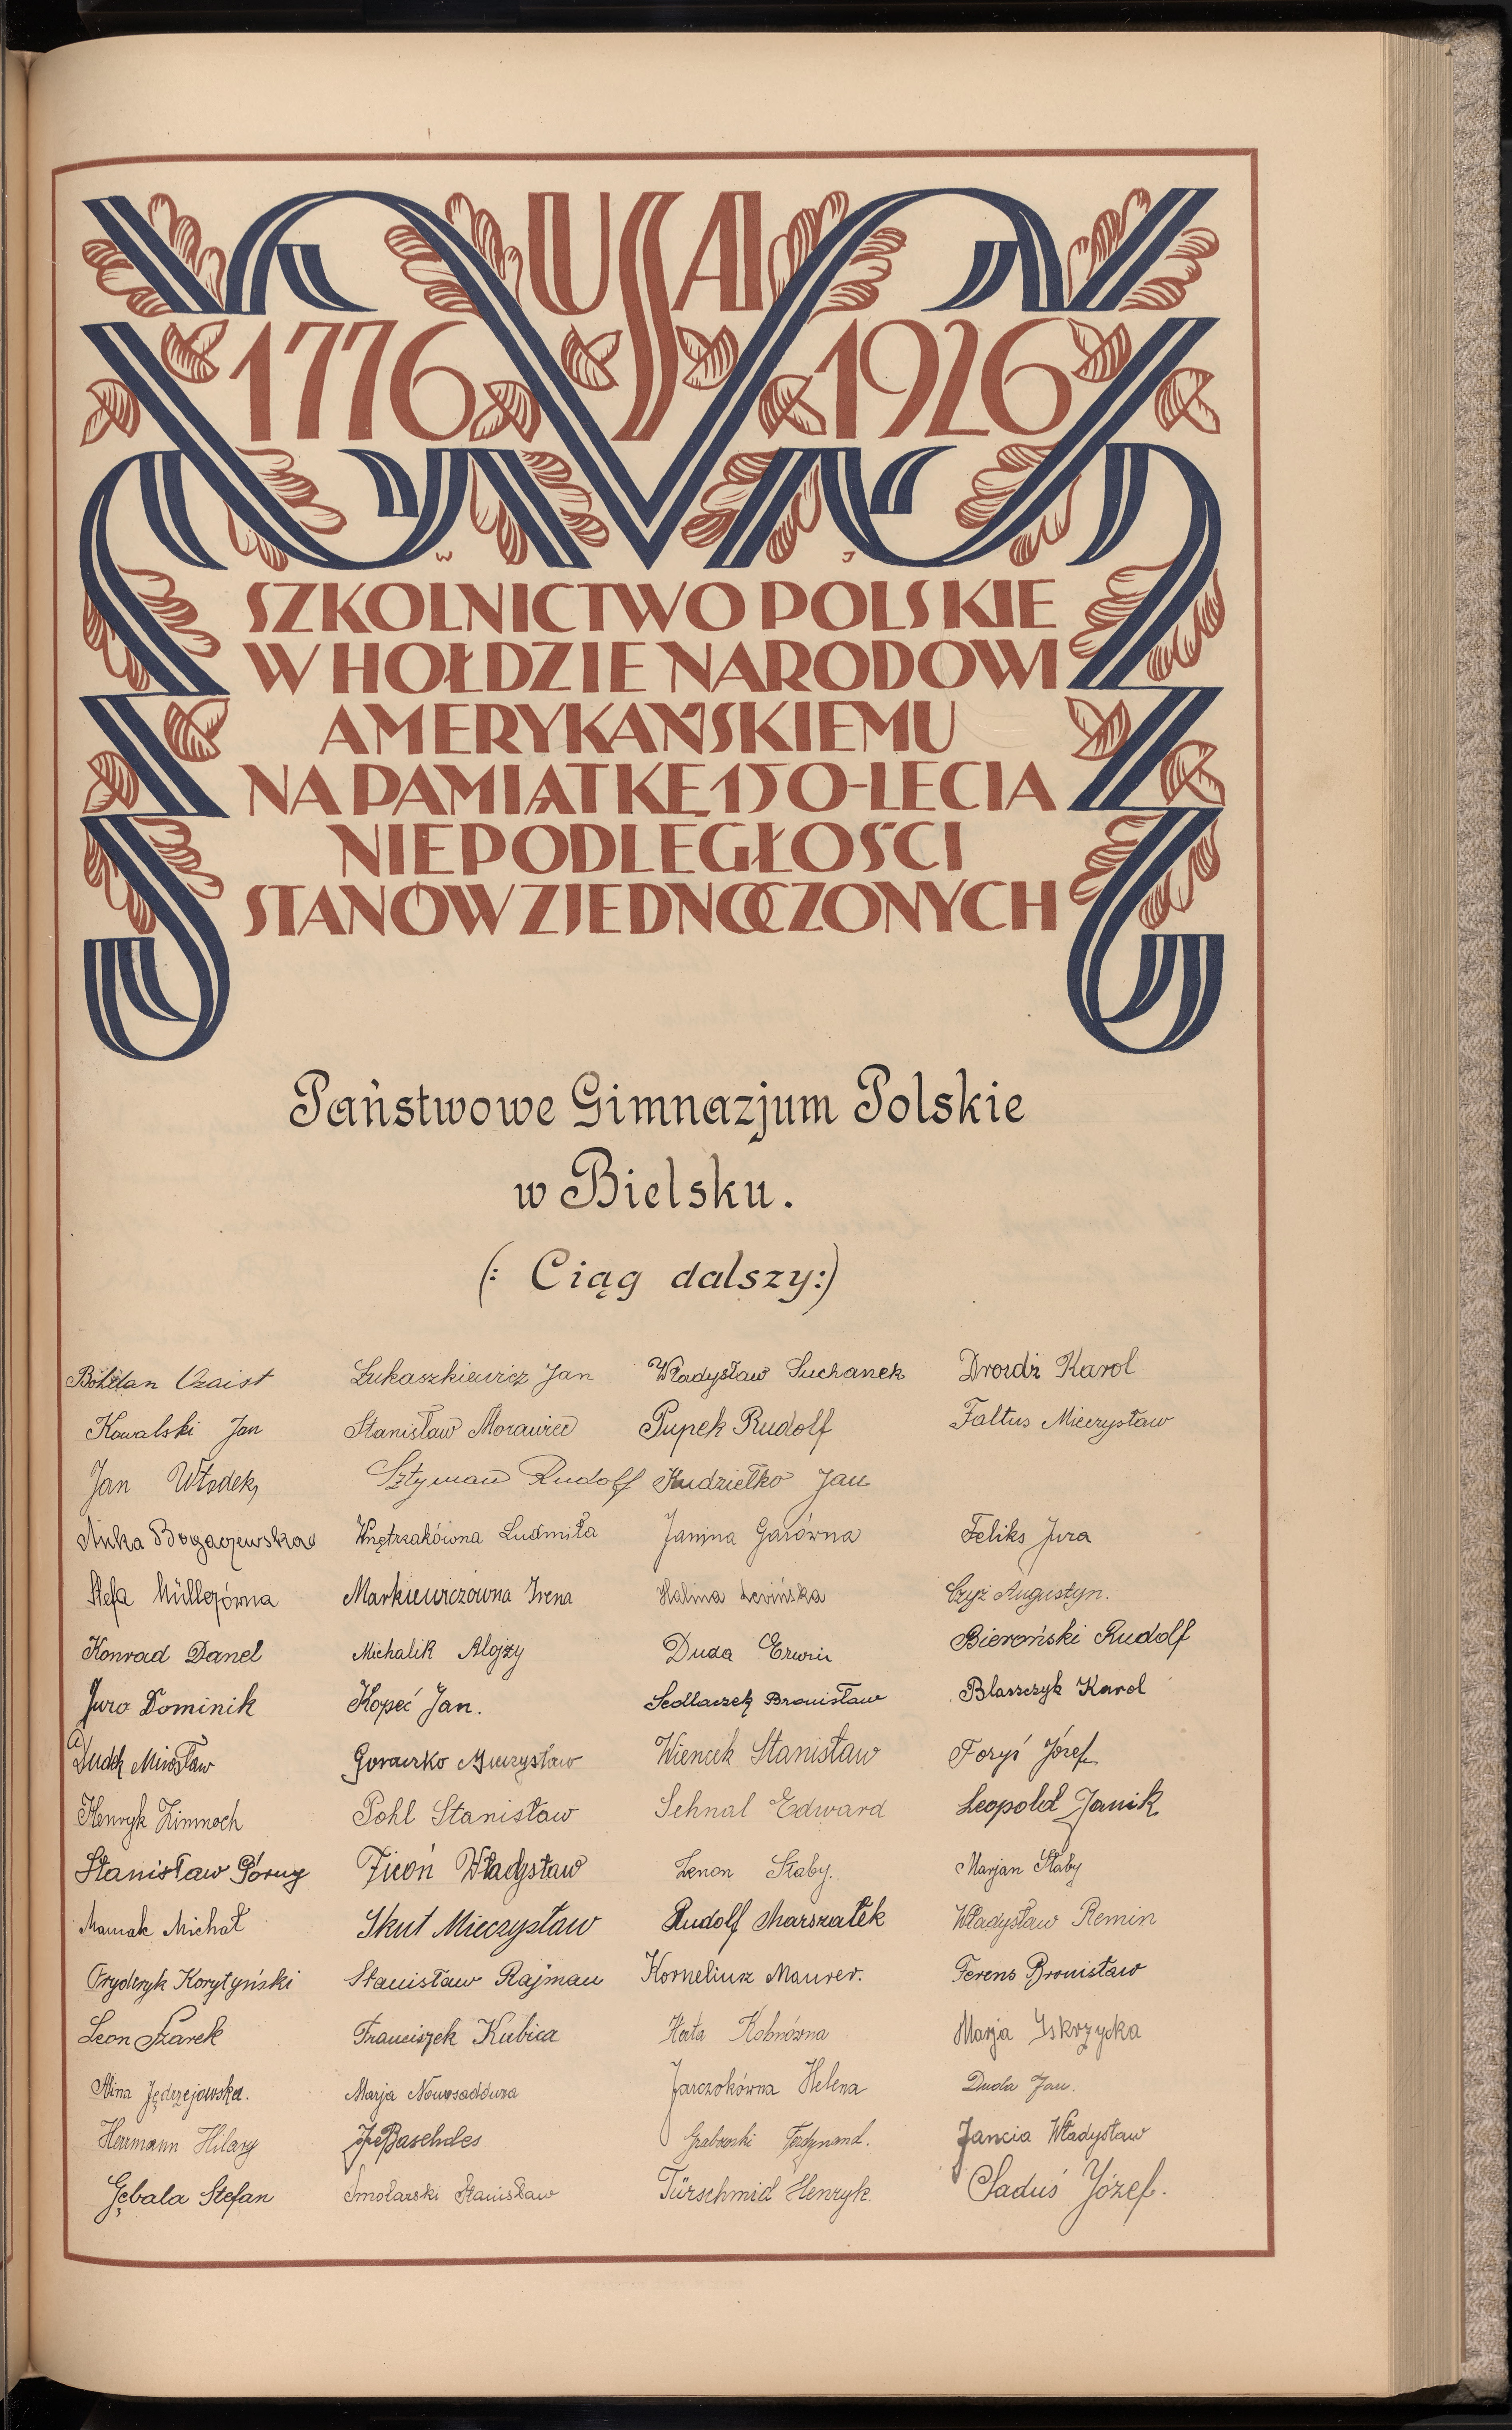 USA
1776 1926
W J
SZKOLNICTWO POLSKIE
W HOŁDZIE NARODOWI
AMERYKAŃSKIEMU
NA PAMIĄTKĘ 150-LECIA
NIEPODLEGŁOŚCI
STANÓW ZJEDNOCZONYCH
Państwowe Gimnazjum Polskie
w Bielsku.
(: Ciąg dalszy:)
Bohdan Czaist Łukaszkiewicz Jan Władysław Suchanek Drozdż Karol
Kowalski Jan Stanisław Morawiec Pupek Rudolf Faltus Mieczysław
Jan Włodek Sztyman Rudolf Kudziełko Jan
Anka Bogaczewska Wnętrzakówna Ludmiła Janina Gasówna Feliks Jura
Stefa Müllerówna Markiewiczówna Irena Halina Levińska Czyż Augustyn.
Konrad Danel Michalik Alojzy Duda Erwin Bieroński Rudolf
Juro Dominik Kopeć Jan. Sedlaczek Bronisław Blaszczyk Karol
Dudek Mirosław Goraczko Mieczysław Wiencek Stanisław Foryś Józef
Henryk Zimnoch Pohl Stanisław Sehnal Edward Leopold Janik
Stanisław Górny Ficoń Władysław Zenon Słaby. Marjan Słaby
Mamak Michał Skut Mieczysław Rudolf Marszałek Władysław Remin
Fryderyk Korytyński Stanisław Rajman Korneliusz Maurer. Ferens Bronisław
Leon Szarek Franciszek Kubica Herta Kobnówna Marja Iskrzycka
Alina Jędrzejowska. Marja Nowosadówna Jarczokówna Helena Duda Jan.
Herrmann Hilary Baschdes Grabowski Ferdynand. Jancia Władysław
Gębala Stefan Smolarski Stanisław Türschmid Henryk. Saduś Józef.